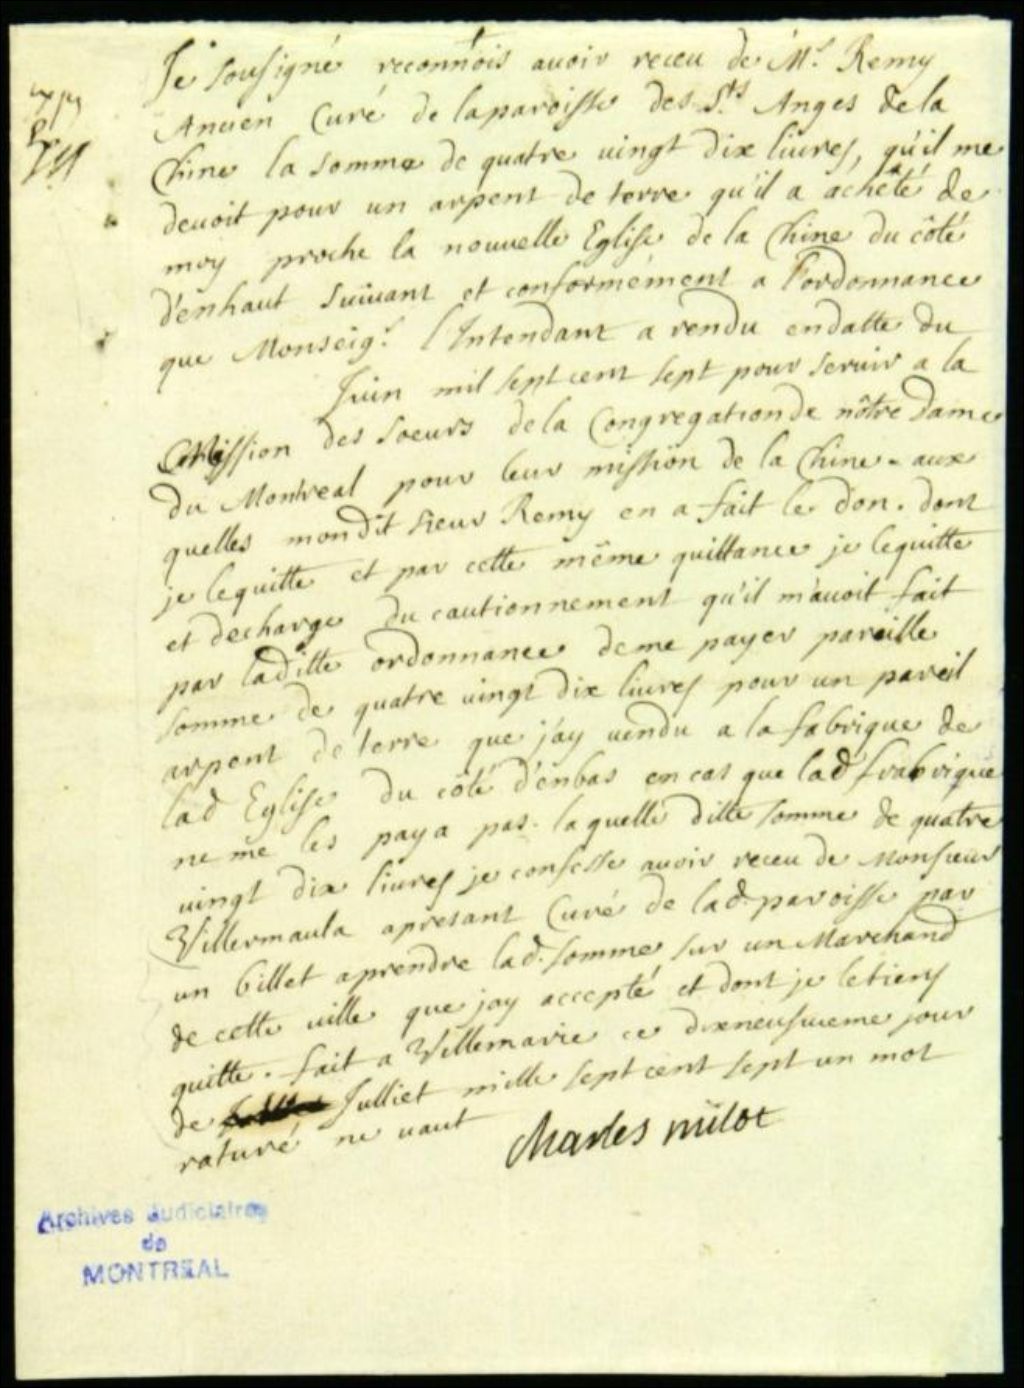 Je sousigné reconnois avoir receu de Mr. Remy
Ancien Curé de laparoisse des Sts. Anges dela
Chine la somme de quatre vingt dix livres, qu'il me
devoit pour un arpent de terre qu'il a achêté de
moy proche la nouvelle Eglise de la Chine du côté
d'enhaut suivant et conformément a l'ordonnance
que Monseigr. l'Intendant a rendu endatte du
Juin mil sept cent sept pour servir a la
Mission des Soeurs dela Congregation de nôtre Dame
du Montreal pour leur mission de la Chine - aux
quelles mondit sieur Remy en a fait le don. dont
je lequitte et par cette même quittance je lequitte
et decharge du cautionnement qu'il m'avoit fait
par laditte ordonnance deme payer pareille
somme de quatre vingt dix livres pour un pareil
arpent de terre que j'ay vendu a la fabrique de
lad Eglise du côté d'enbas en cas que lad frabrique
ne me les paya pas. laquelle ditte somme de quatre
vingt dix livres je confesse avoir receu de Monsieur
Villermaula apresant Curé de lad. paroisse par
un billet aprendre lad. somme sur un Marchand
de cette ville que jay accepté et dont je letiens
quitte. fait a Villemarie ce dixneufvieme jour
de Julliet mille sept cent sept un mot
raturé ne vaut
Charles milot
Archives Judiciaires
de
MONTREAL